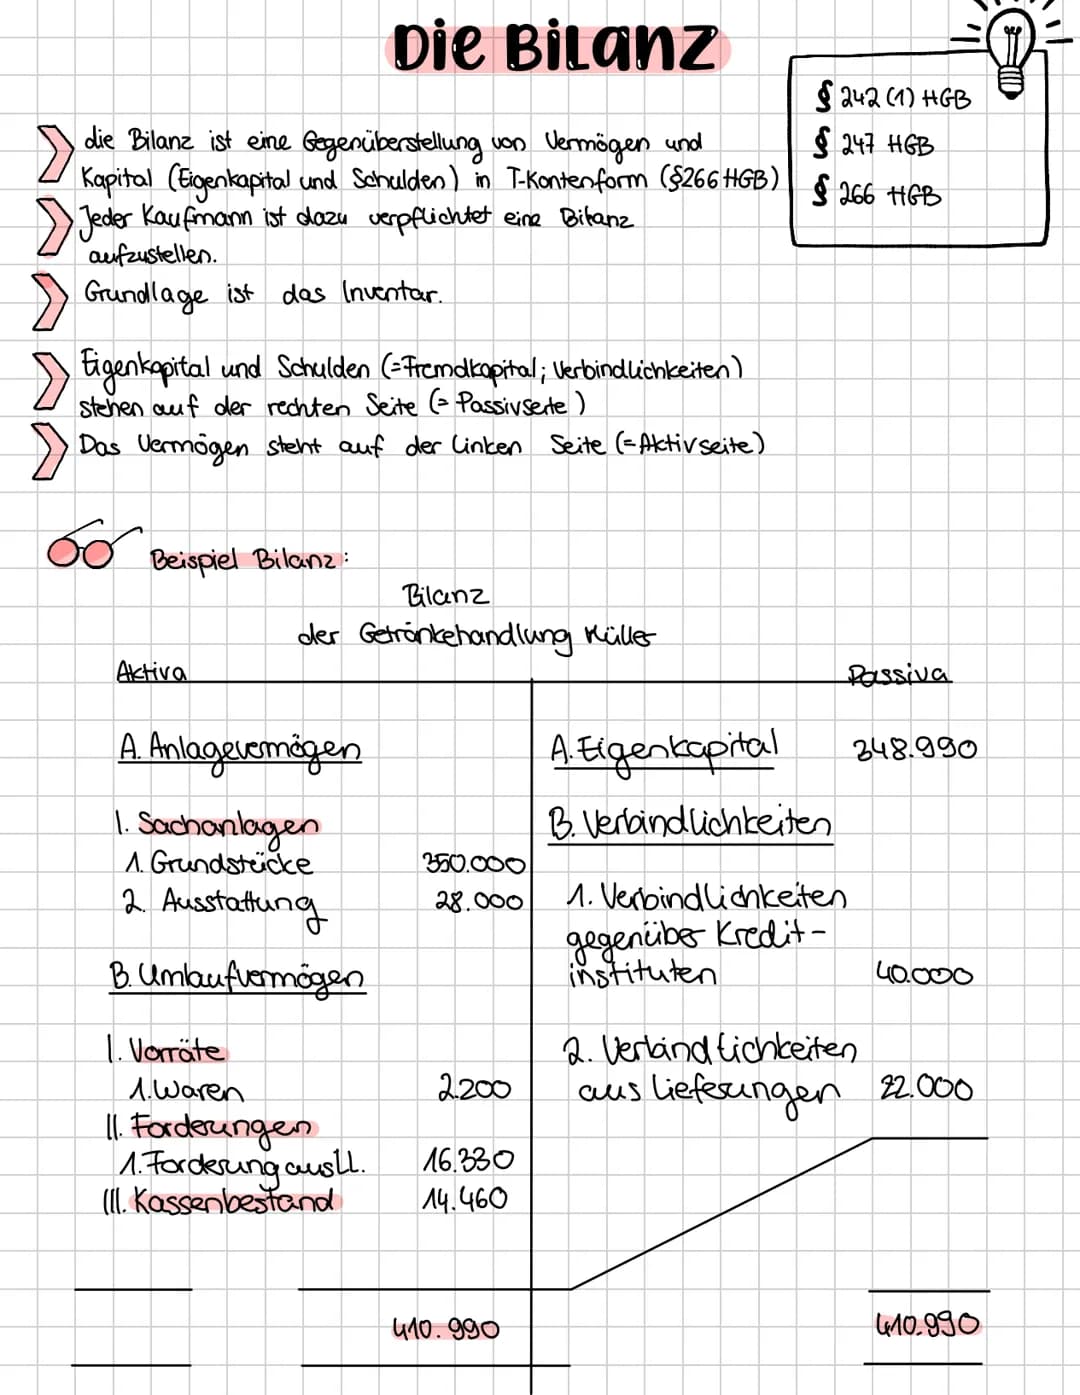 Die Bilanz
§ 242 (1) HGB
§ 247 HGB
§ 266 HGB
die Bilanz ist eine Gegenüberstellung von Vermögen und
Kapital (Eigenkapital und Schulden) in T-Kontenform (§266 HGB)
Jeder Kaufmann ist dazu verpflichtet eine Bilanz
aufzustellen.
Grundlage ist das Inventar.
Eigenkapital und Schulden (=Fremdkapital; Verbindlichkeiten)
stehen auf der rechten Seite (= Passivseite)
Das Vermögen steht auf der linken Seite (=Aktivseite)
Beispiel Bilanz:
Bilanz
der Getränkehandlung Müller
Aktiva
Passiva
A. Anlagevermögen
I. Sachanlagen
1. Grundstücke 350.000
2. Ausstattung 28.000
B. Umlaufvermögen
I. Vorräte
1. Waren 2.200
II. Forderungen
1. Forderung aus LL. 16.330
III. Kassenbestand 14.460
410.990
A. Eigenkapital 348.990
B. Verbindlichkeiten
1. Verbindlichkeiten
gegenüber Kredit-
instituten 40.000
2. Verbindlichkeiten
aus Lieferungen 22.000
410.990